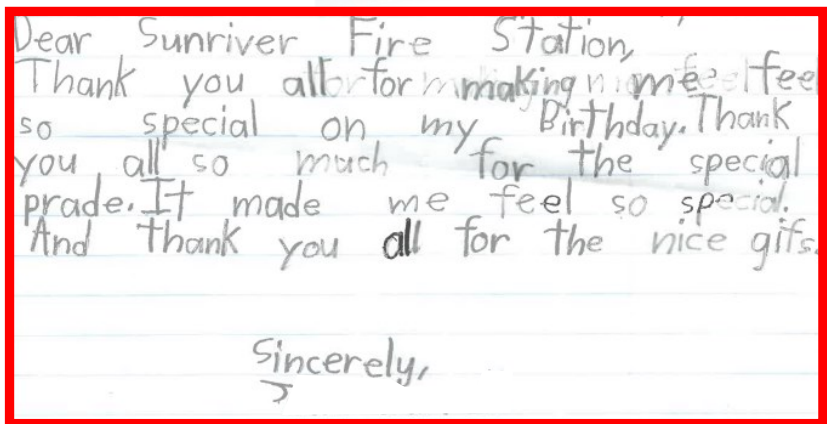 Dear Sunriver Fire Station,
Thank you all for making me feel
so special on my Birthday. Thank
you all so much for the special
prade. It made me feel so special.
And thank you all for the nice gifs.
Sincerely,